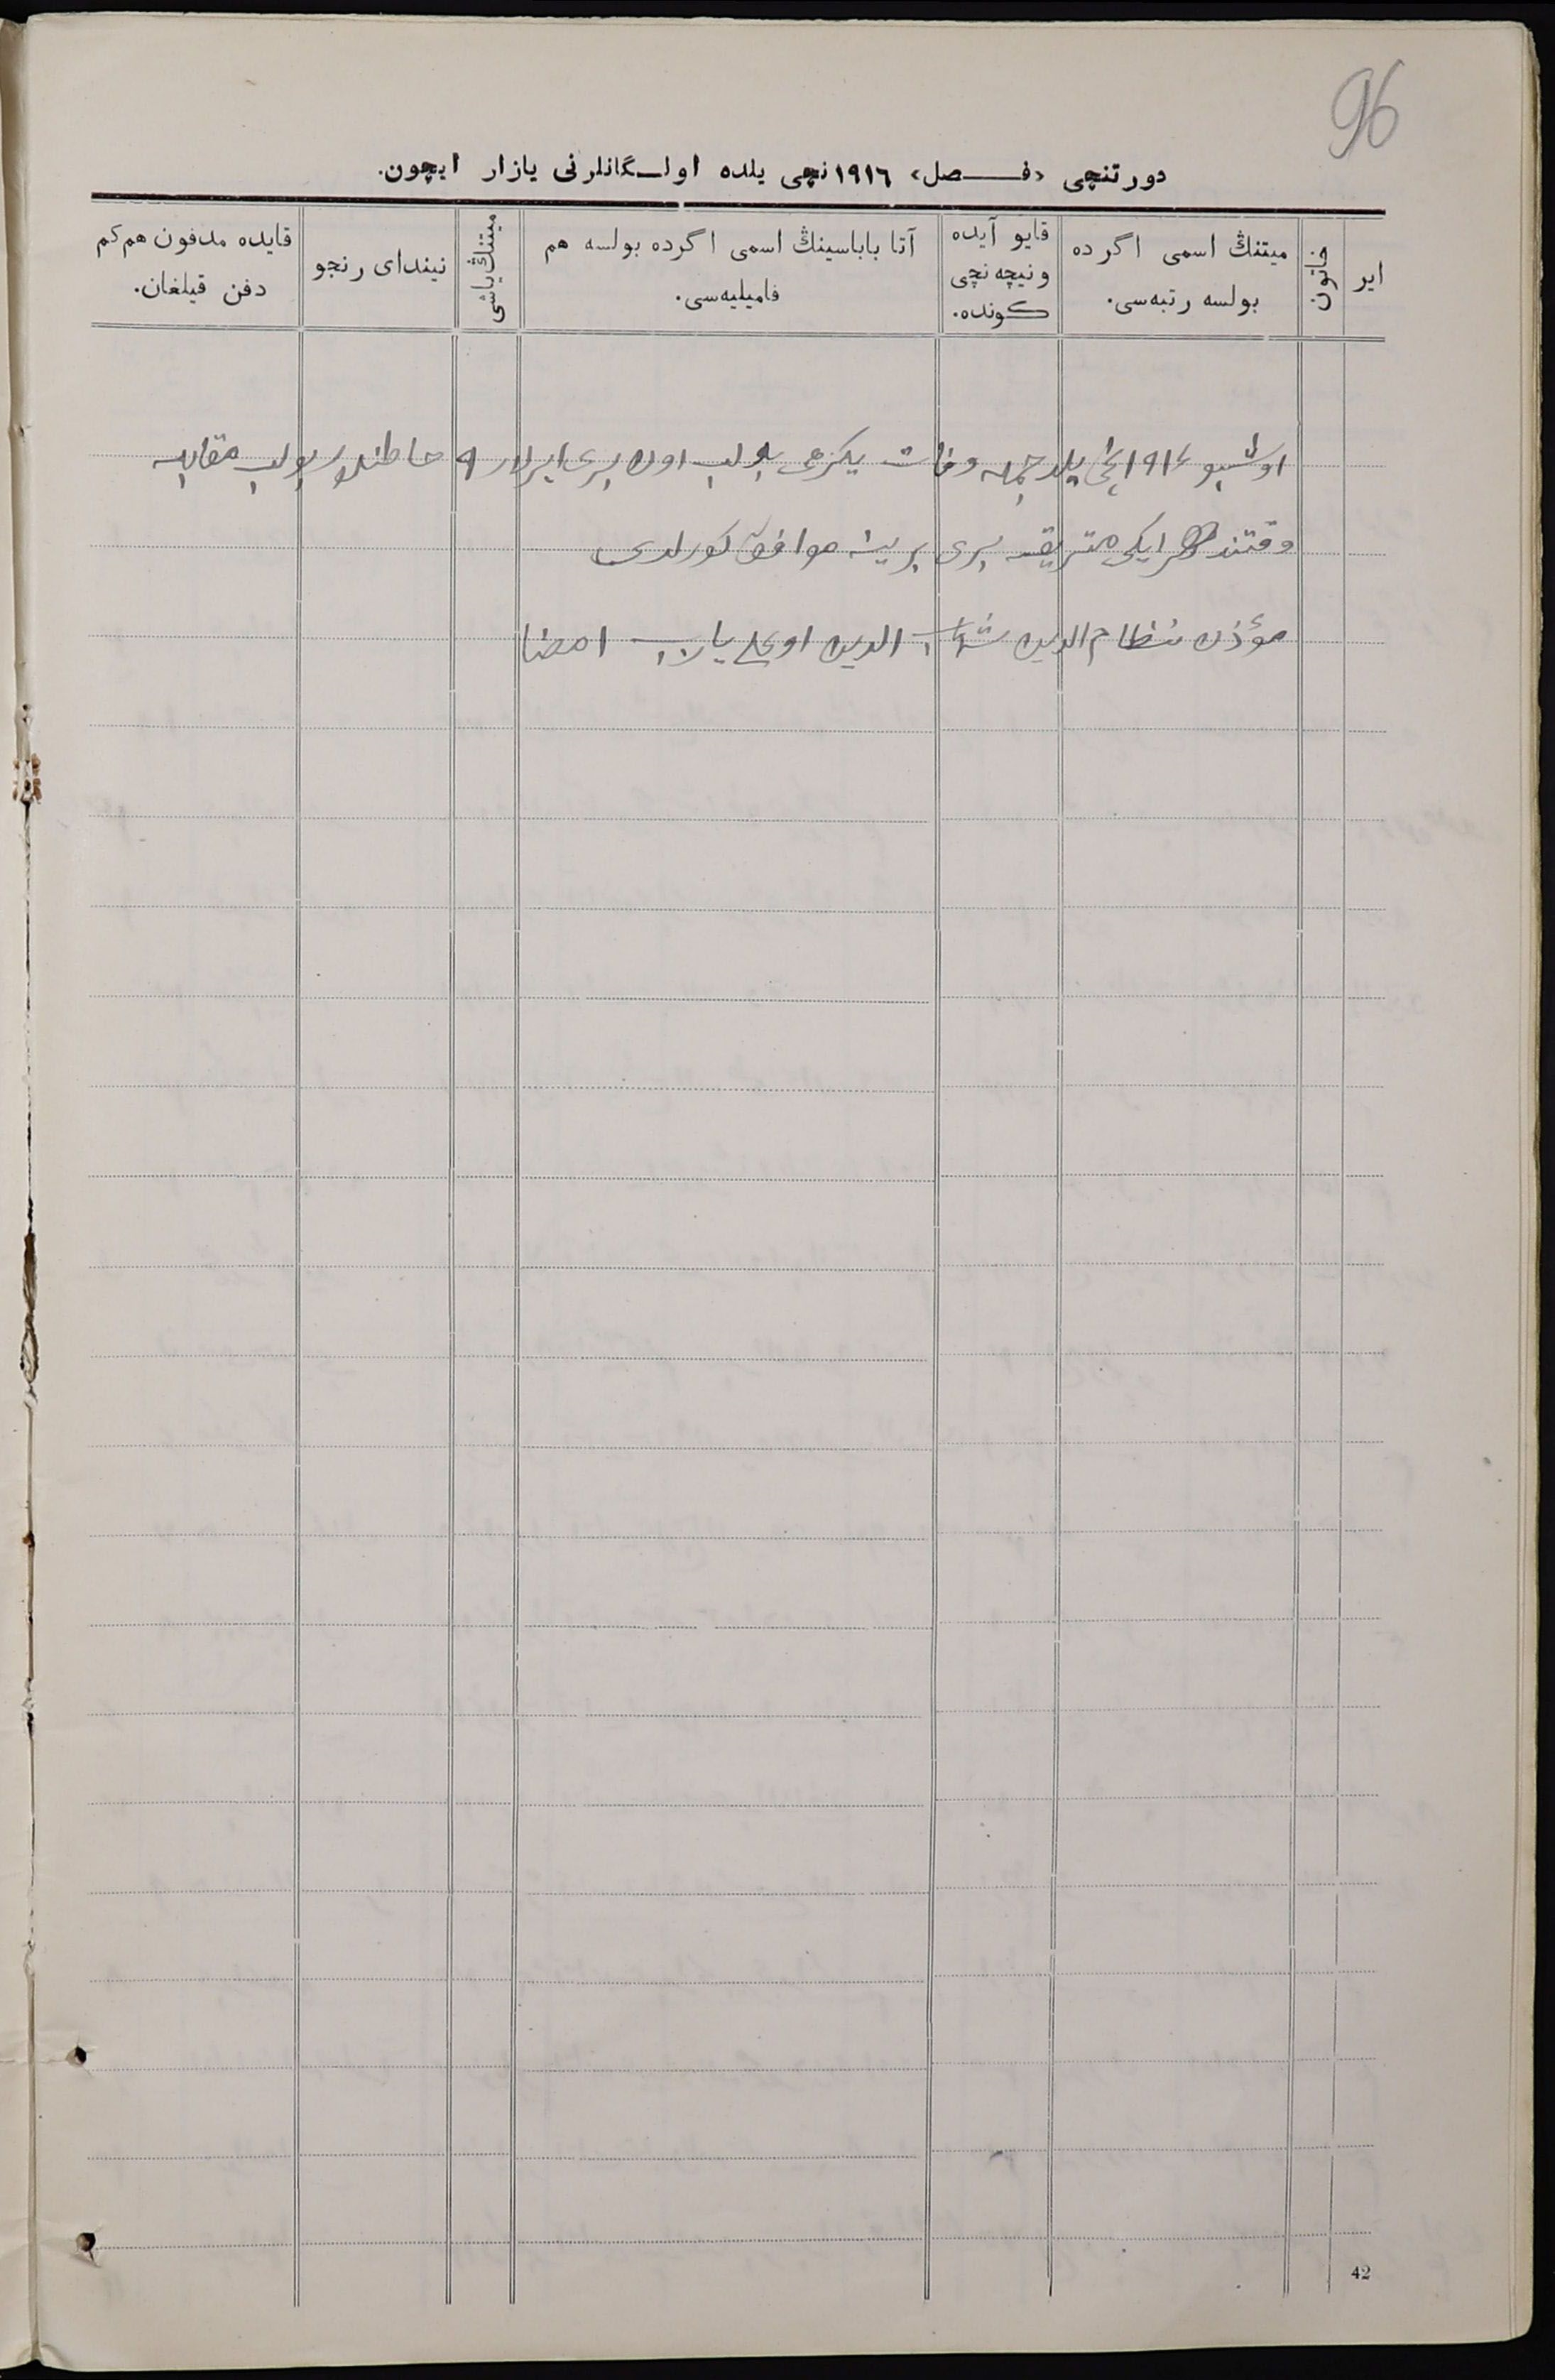 96
دورتنچی «فــصل» ١٩١٦نچی یلده اولـگانلرنی یازار ایچون.
ایر
خاتون
میتنڭ اسمی اگرده
بولسه رتبه‌سی.
قایو آیده
ونیچه‌نچی
کونده.
آتا باباسینڭ اسمی اگرده بولسه هم
فامیلیه‌سی.
میتنڭ یاشی
نیندای رنجو
قایده مدفون هم کم
دفن قیلغان.
اوشبو ١٩١٦نچی یلده جمله وفات یکرمی بولب اون بری ایرلار ٩ خاطنلار بولب مقابله
وقتنده هر ایکی متریقه بری برینه موافق کورلدی
مؤذن نظام الدین شهاب الدین اوغلی امضا
42